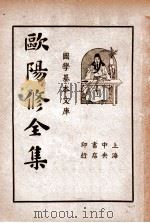 國學基本文庫
歐陽修全集
上海
中央
書店
印行